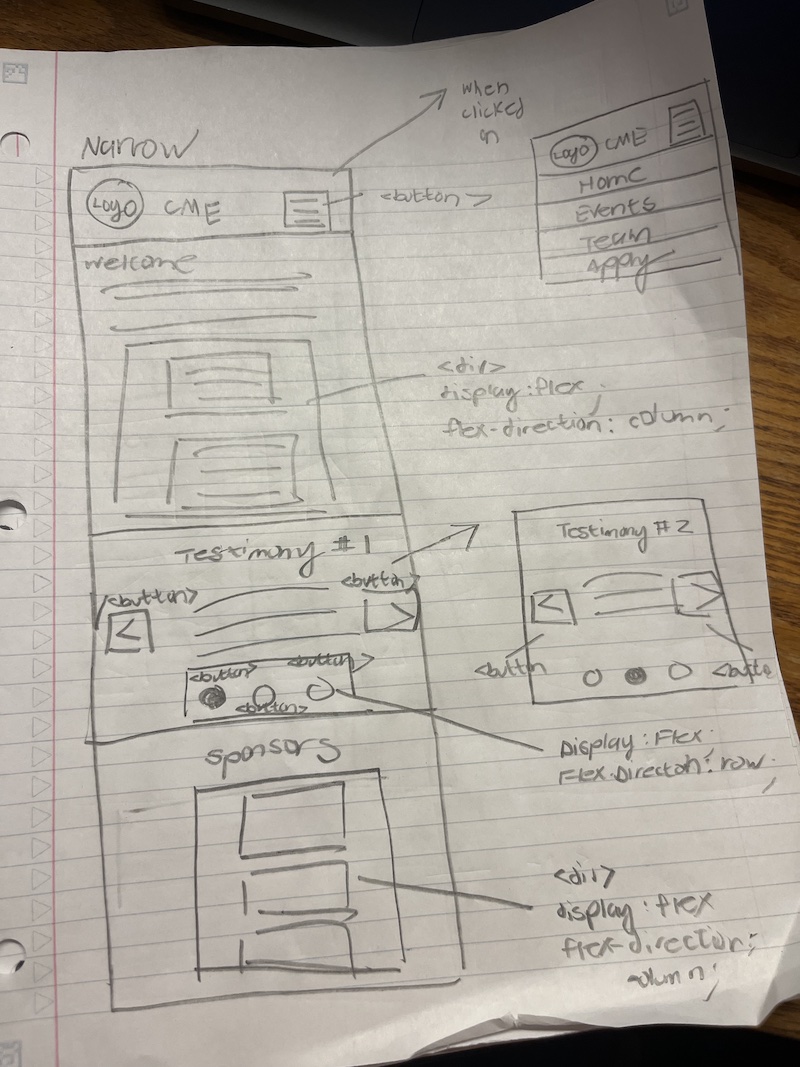 when
clicked
on
Narrow
Logo CME
<button>
Logo CME
Home
Events
Team
Apply
Welcome
<div>
display: flex;
flex-direction: column;
Testimony #1
<button>
<button>
<button>
<button>
<button>
Testimony #2
<button
<butto
Display: Flex.
Flex.Directon: row;
Sponsors
<div>
display: flex
flex-director:;
column;